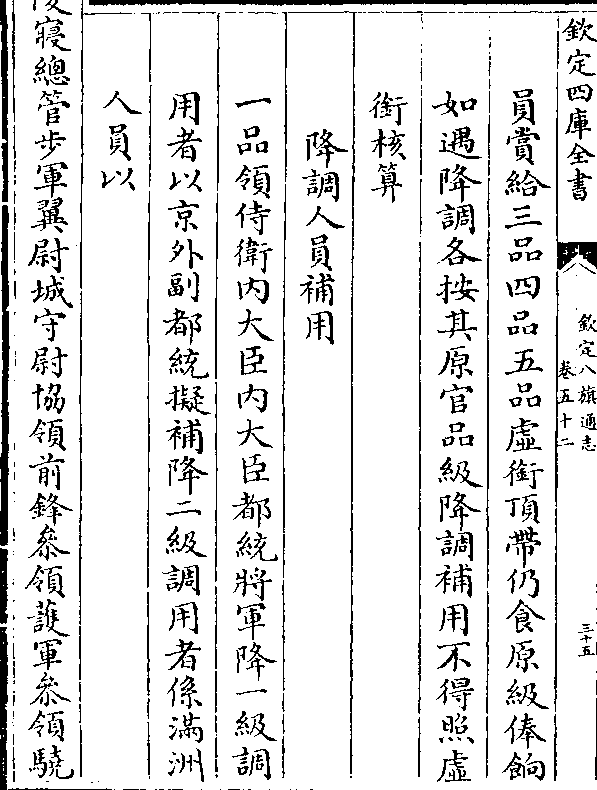 欽定四庫全書
欽定八旗通志
卷五十二
三十五
員賞給三品四品五品虛銜頂帶仍食原級俸餉
如遇降調各按其原官品級降調補用不得照虛
銜核算
降調人員補用
一品領侍衛内大臣内大臣都統將軍降一級調
用者以京外副都統擬補降二級調用者係滿洲
人員以
寢總管步軍翼尉城守尉協領前鋒叅領護軍叅領驍